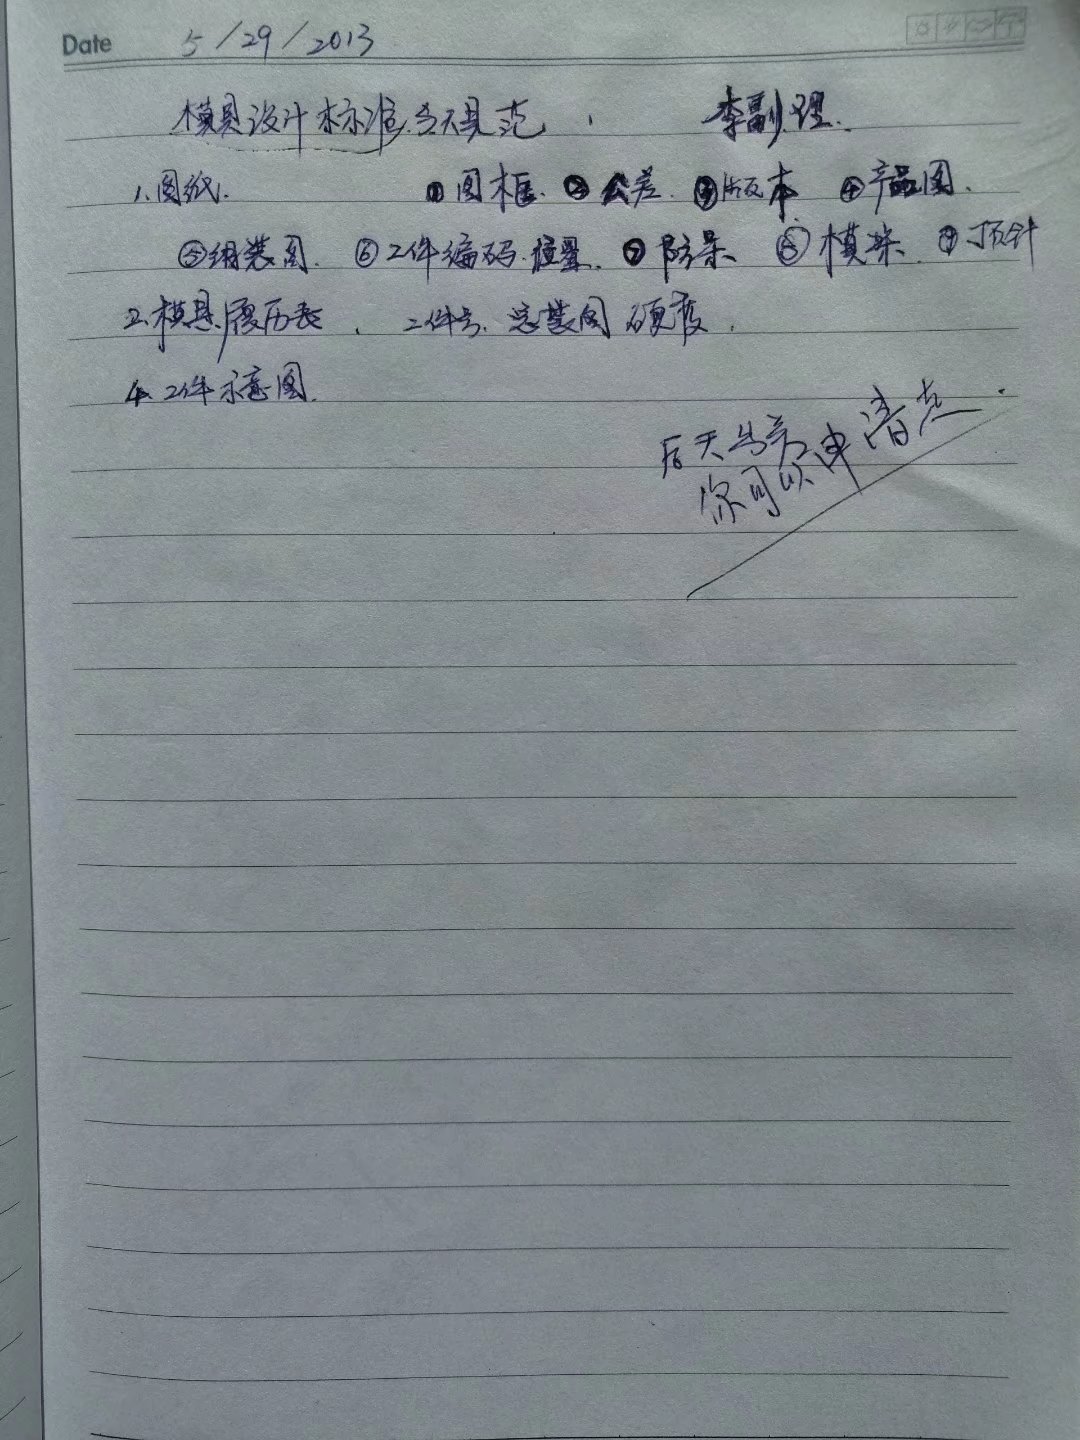 Date 5/29/2013
模具设计标准与规范, 李副理.
1.图纸. ①图框. ②公差. ③版本 ④产品图.
⑤组装图. ⑥工件编码.位置. ⑦防呆 ⑧模床. ⑨顶针
2.模具履历表, 工件号. 总装图 硬度.
4.工件示意图.
后天
你可以申请